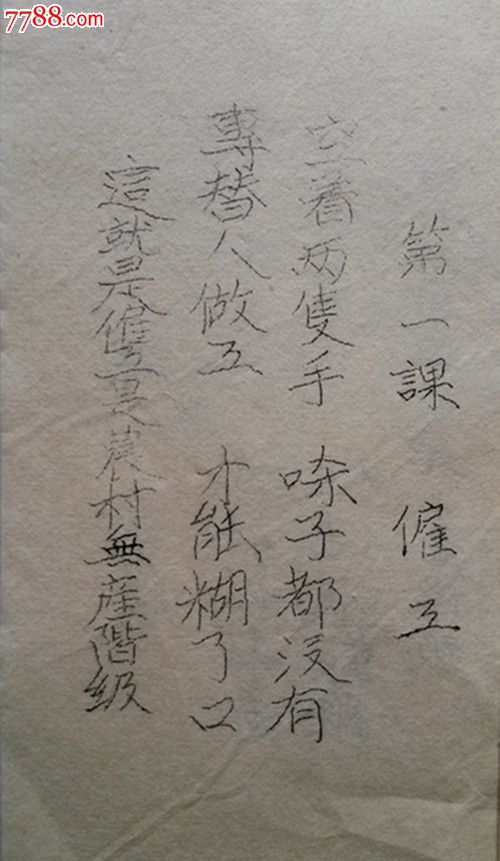 7788.com
第一課 僱工
空着两隻手 啋子都没有
專替人做工 才能糊了口
這就是僱工是農村無產階级